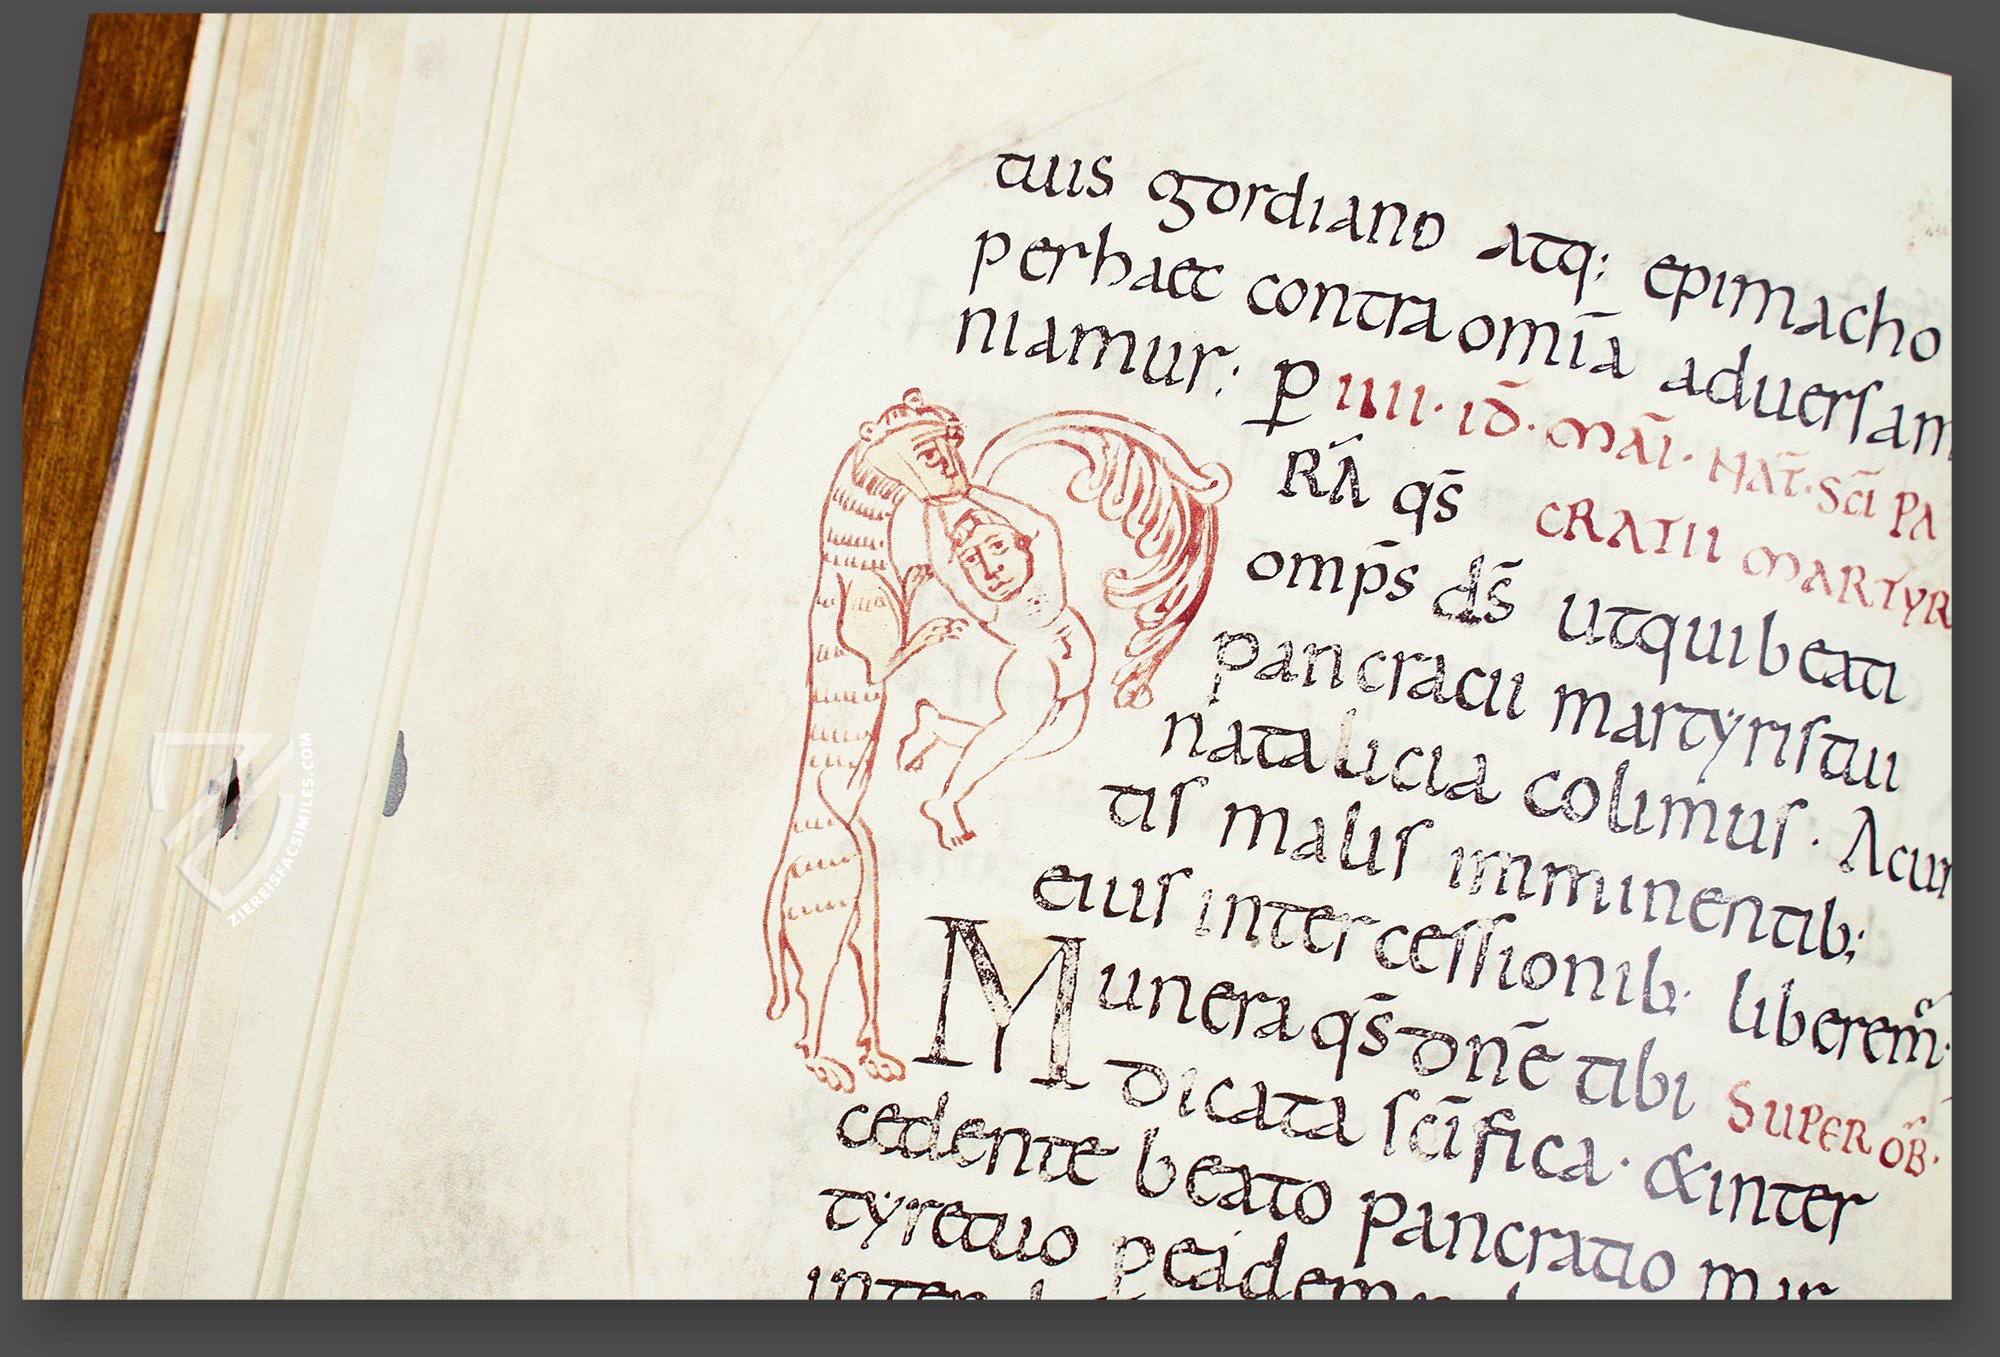 tuis gordiano atq: epimacho
perhaec contra omīa aduersam
niamur; p IIII · ID · MAĪ · NAT̄ · SCĪ PA
RĀ qs̄ CRATII MARTYR
omp̄s ds̄ utquibeati
pancracii martyristui
natalicia colimus · Acun
tis malis imminentib;
eius intercessionib; liberem̄ ·
Munera qs̄ dn̄e tibi SUPER OB̄ ·
dicata scīfica · & inter
cedente beato pancratio mar
tyretuo peadem
ZIEREISFACSIMILES.COM